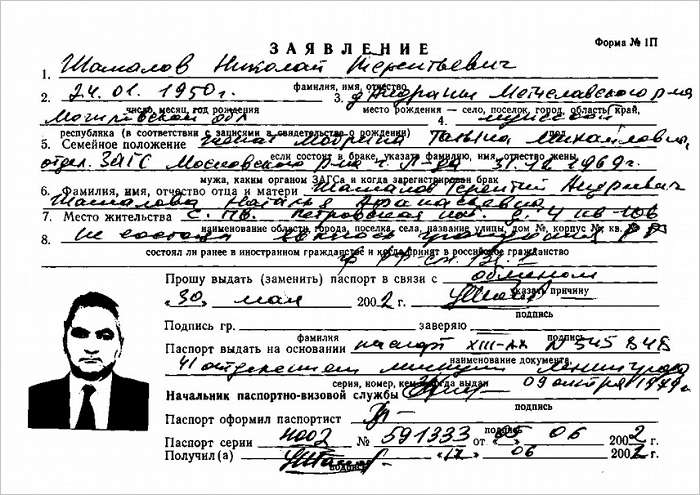 ЗАЯВЛЕНИЕ
Форма № 1П
1. Шамалов Николай Терентьевич
фамилия, имя, отчество
2. 24.01.1950г. 3.
число, месяц, год рождения место рождения — село, поселок, город, область, край,
Могилевской обл 4. мужской
республика (в соответствии с записями в свидетельстве о рождении) пол
5. Семейное положение женат Татьяна Михайловна,
если состоит в браке, указать фамилию, имя, отчество жены,
отдел ЗАГС Московского р-на г. Л-да 31.12.1969г.
мужа, каким органом ЗАГСа и когда зарегистрирован брак
6. Фамилия, имя, отчество отца и матери Шамалов Терентий
Шамалова Наталья
7. Место жительства С.Пб. Петровская наб. д. 4 кв.
наименование области, города, поселка, села, название улицы, дом №, корпус № кв.
8. не состоял
состоял ли ранее в иностранном гражданстве и когда принят в российское гражданство
Прошу выдать (заменить) паспорт в связи с обменом
указать причину
«30» мая 2002 г.
подпись
Подпись гр. заверяю
фамилия подпись
Паспорт выдать на основании паспорт XIII-АК N 545848
наименование документа,
41 отделением милиции Ленинграда
серия, номер, кем и когда выдан
09 октября 1979г.
Начальник паспортно-визовой службы
подпись
Паспорт оформил паспортист
подпись
Паспорт серии 4002 № 591333 от «05» 06 2002 г.
Получил(а) «12» 06 2002 г.
подпись